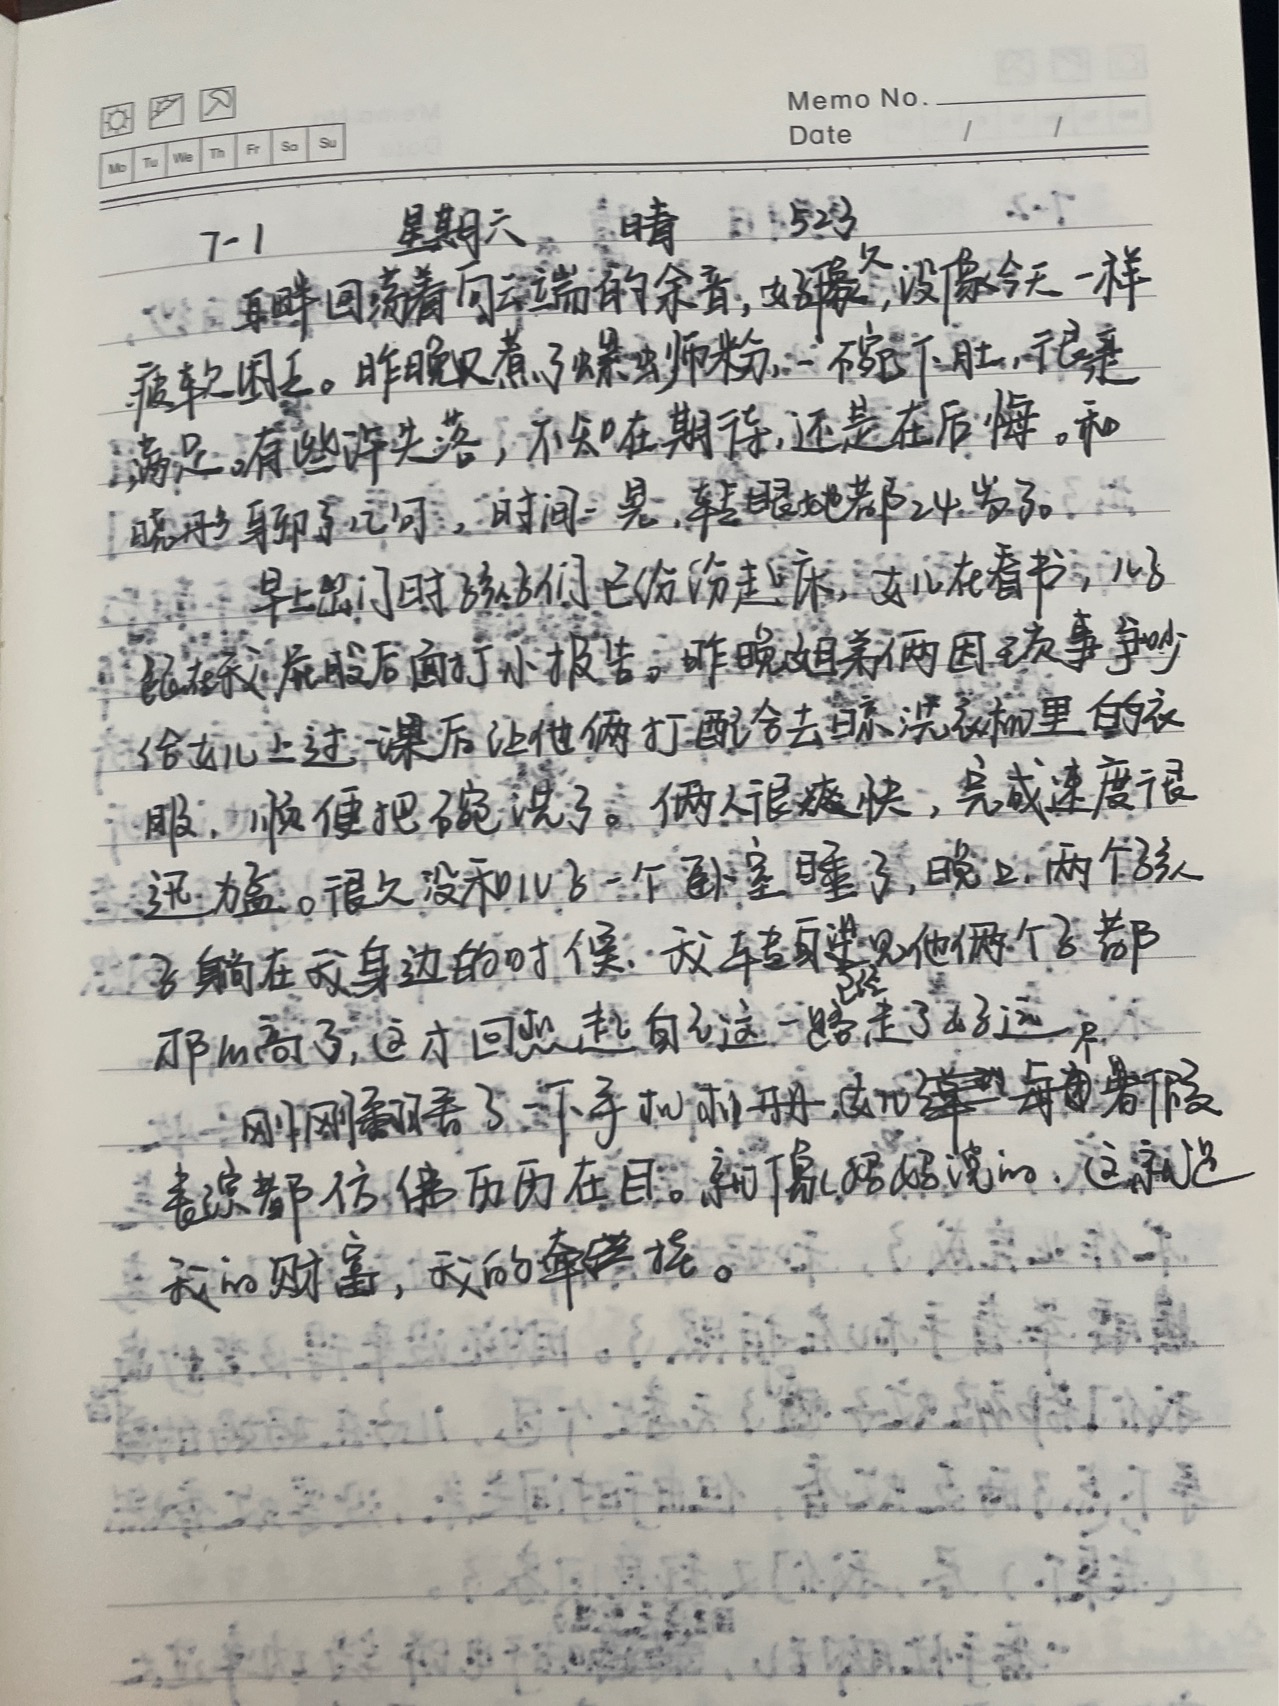 Memo No.
Date / /
Mo Tu We Th Fr Sa Su
7-1 星期六 晴 523
耳畔回荡着向云端的余音，好像久，没像今天一样
疲软困乏。昨晚又煮了螺蛳粉，一碗下肚，很是
满足。有些许失落，不知在期待，还是在后悔。和
晓丹多聊了几句，时间一晃，转眼她都24岁了。
早上出门时孩子们已纷纷起床，女儿在看书，儿子
在我屁股后面打小报告。昨晚姐弟俩因琐事争吵
给女儿上过一课后让他俩打配合去晾洗衣机里的衣
服，顺便把碗洗了。俩人很爽快，完成速度很
迅猛。很久没和儿子一个卧室睡了，晚上，两个孩
子躺在我身边的时候，我转身看见他俩个子都
那么高了，这才回想起自己这一路已经走了好远
刚刚翻看了一下手机相册，每年暑假
表演都仿佛历历在目。就像妈妈说的，这就是
我的财富，我的牵挂。